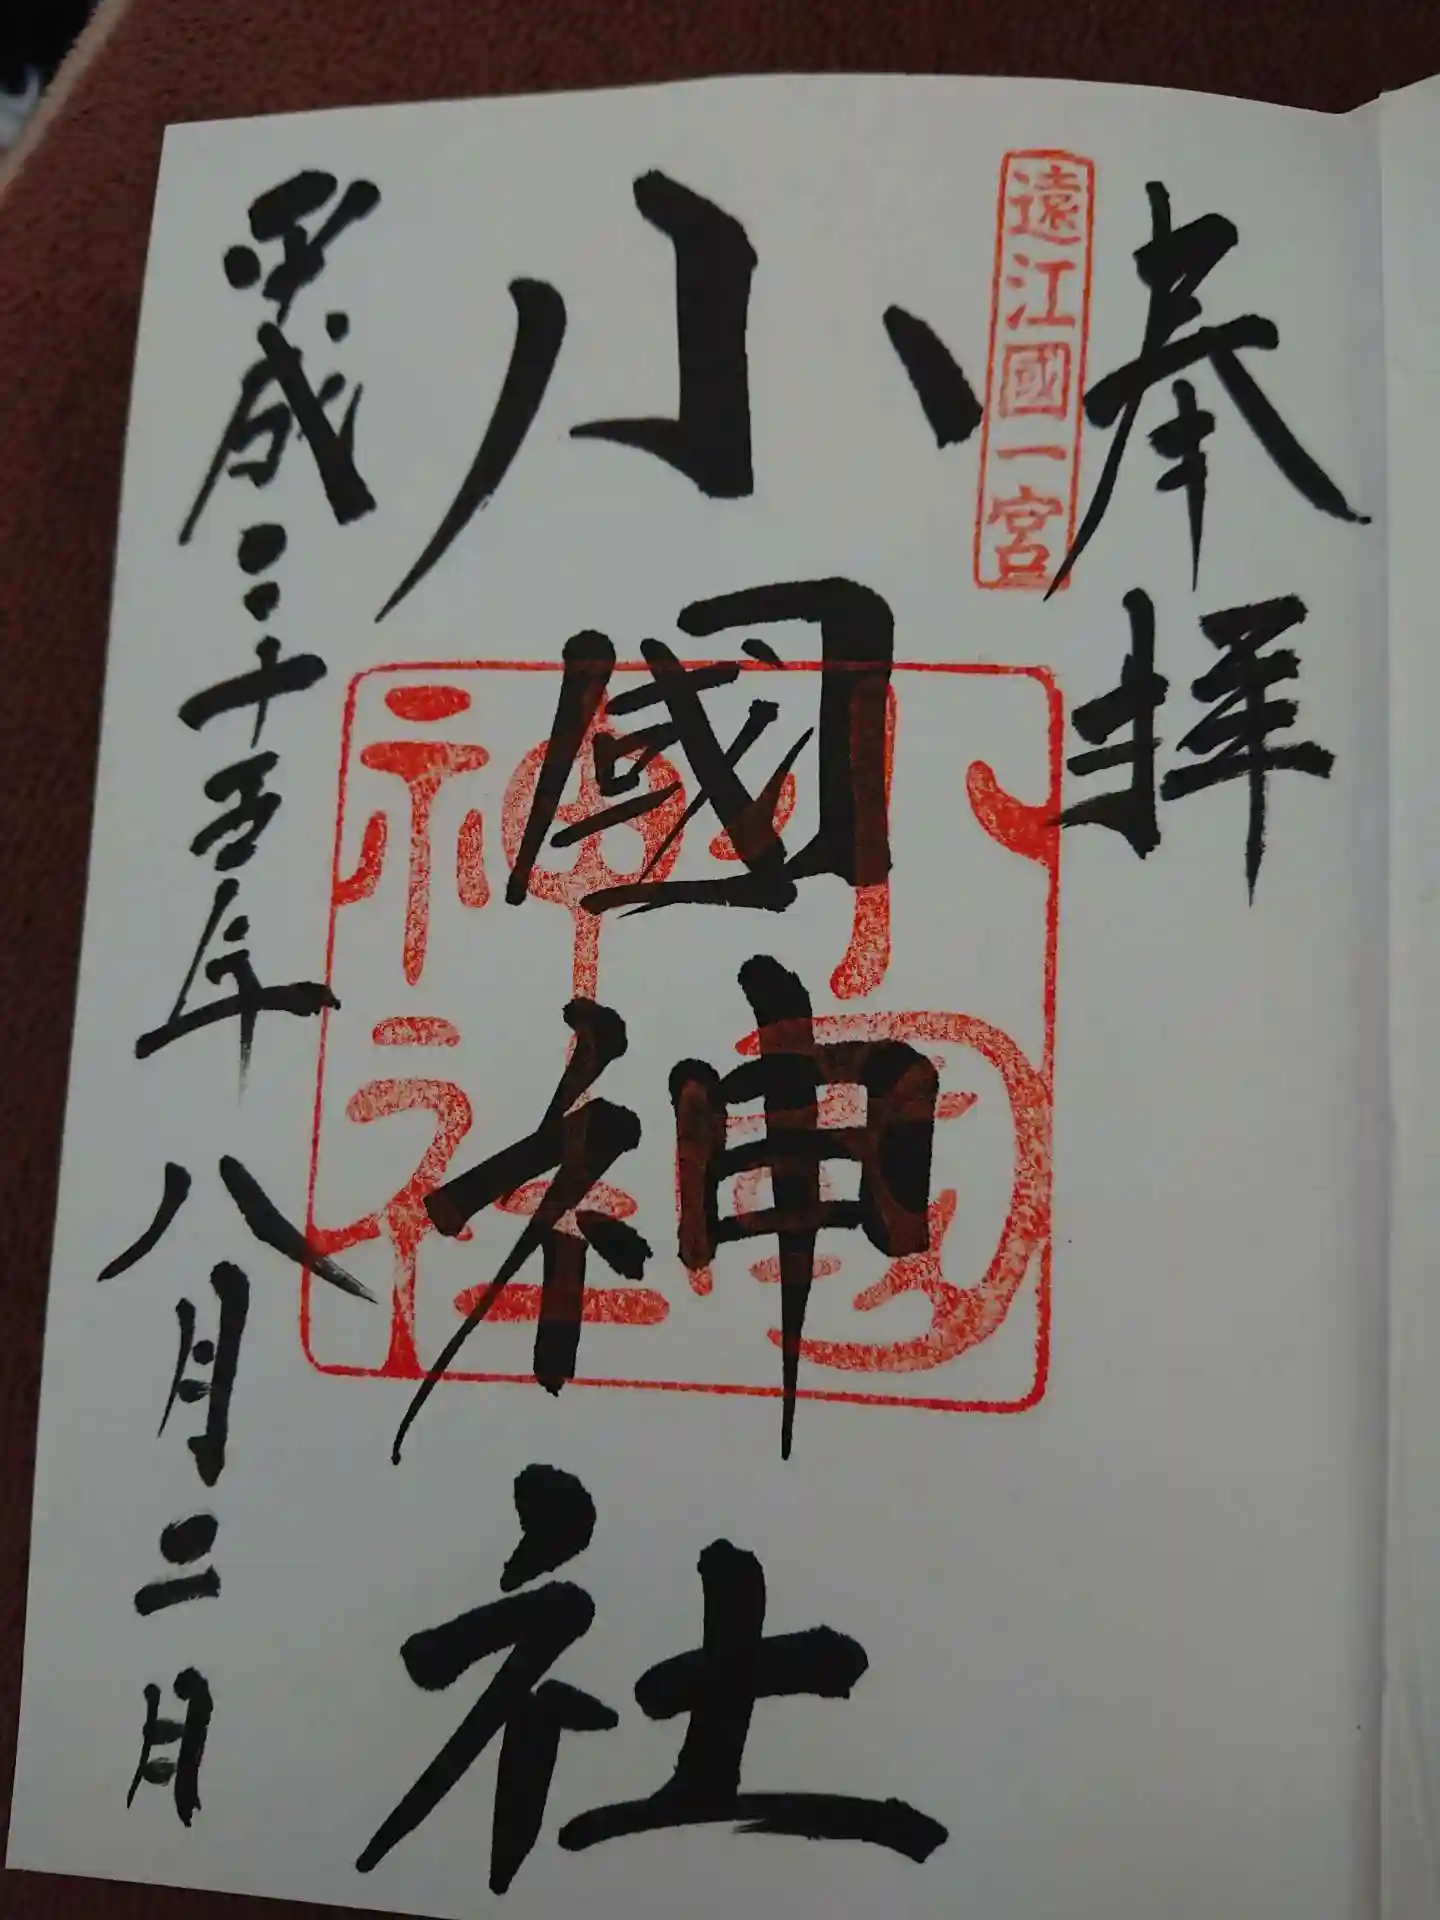 奉拝
遠江國一宮
小國神社
小國
神社
平成二十五年八月二日